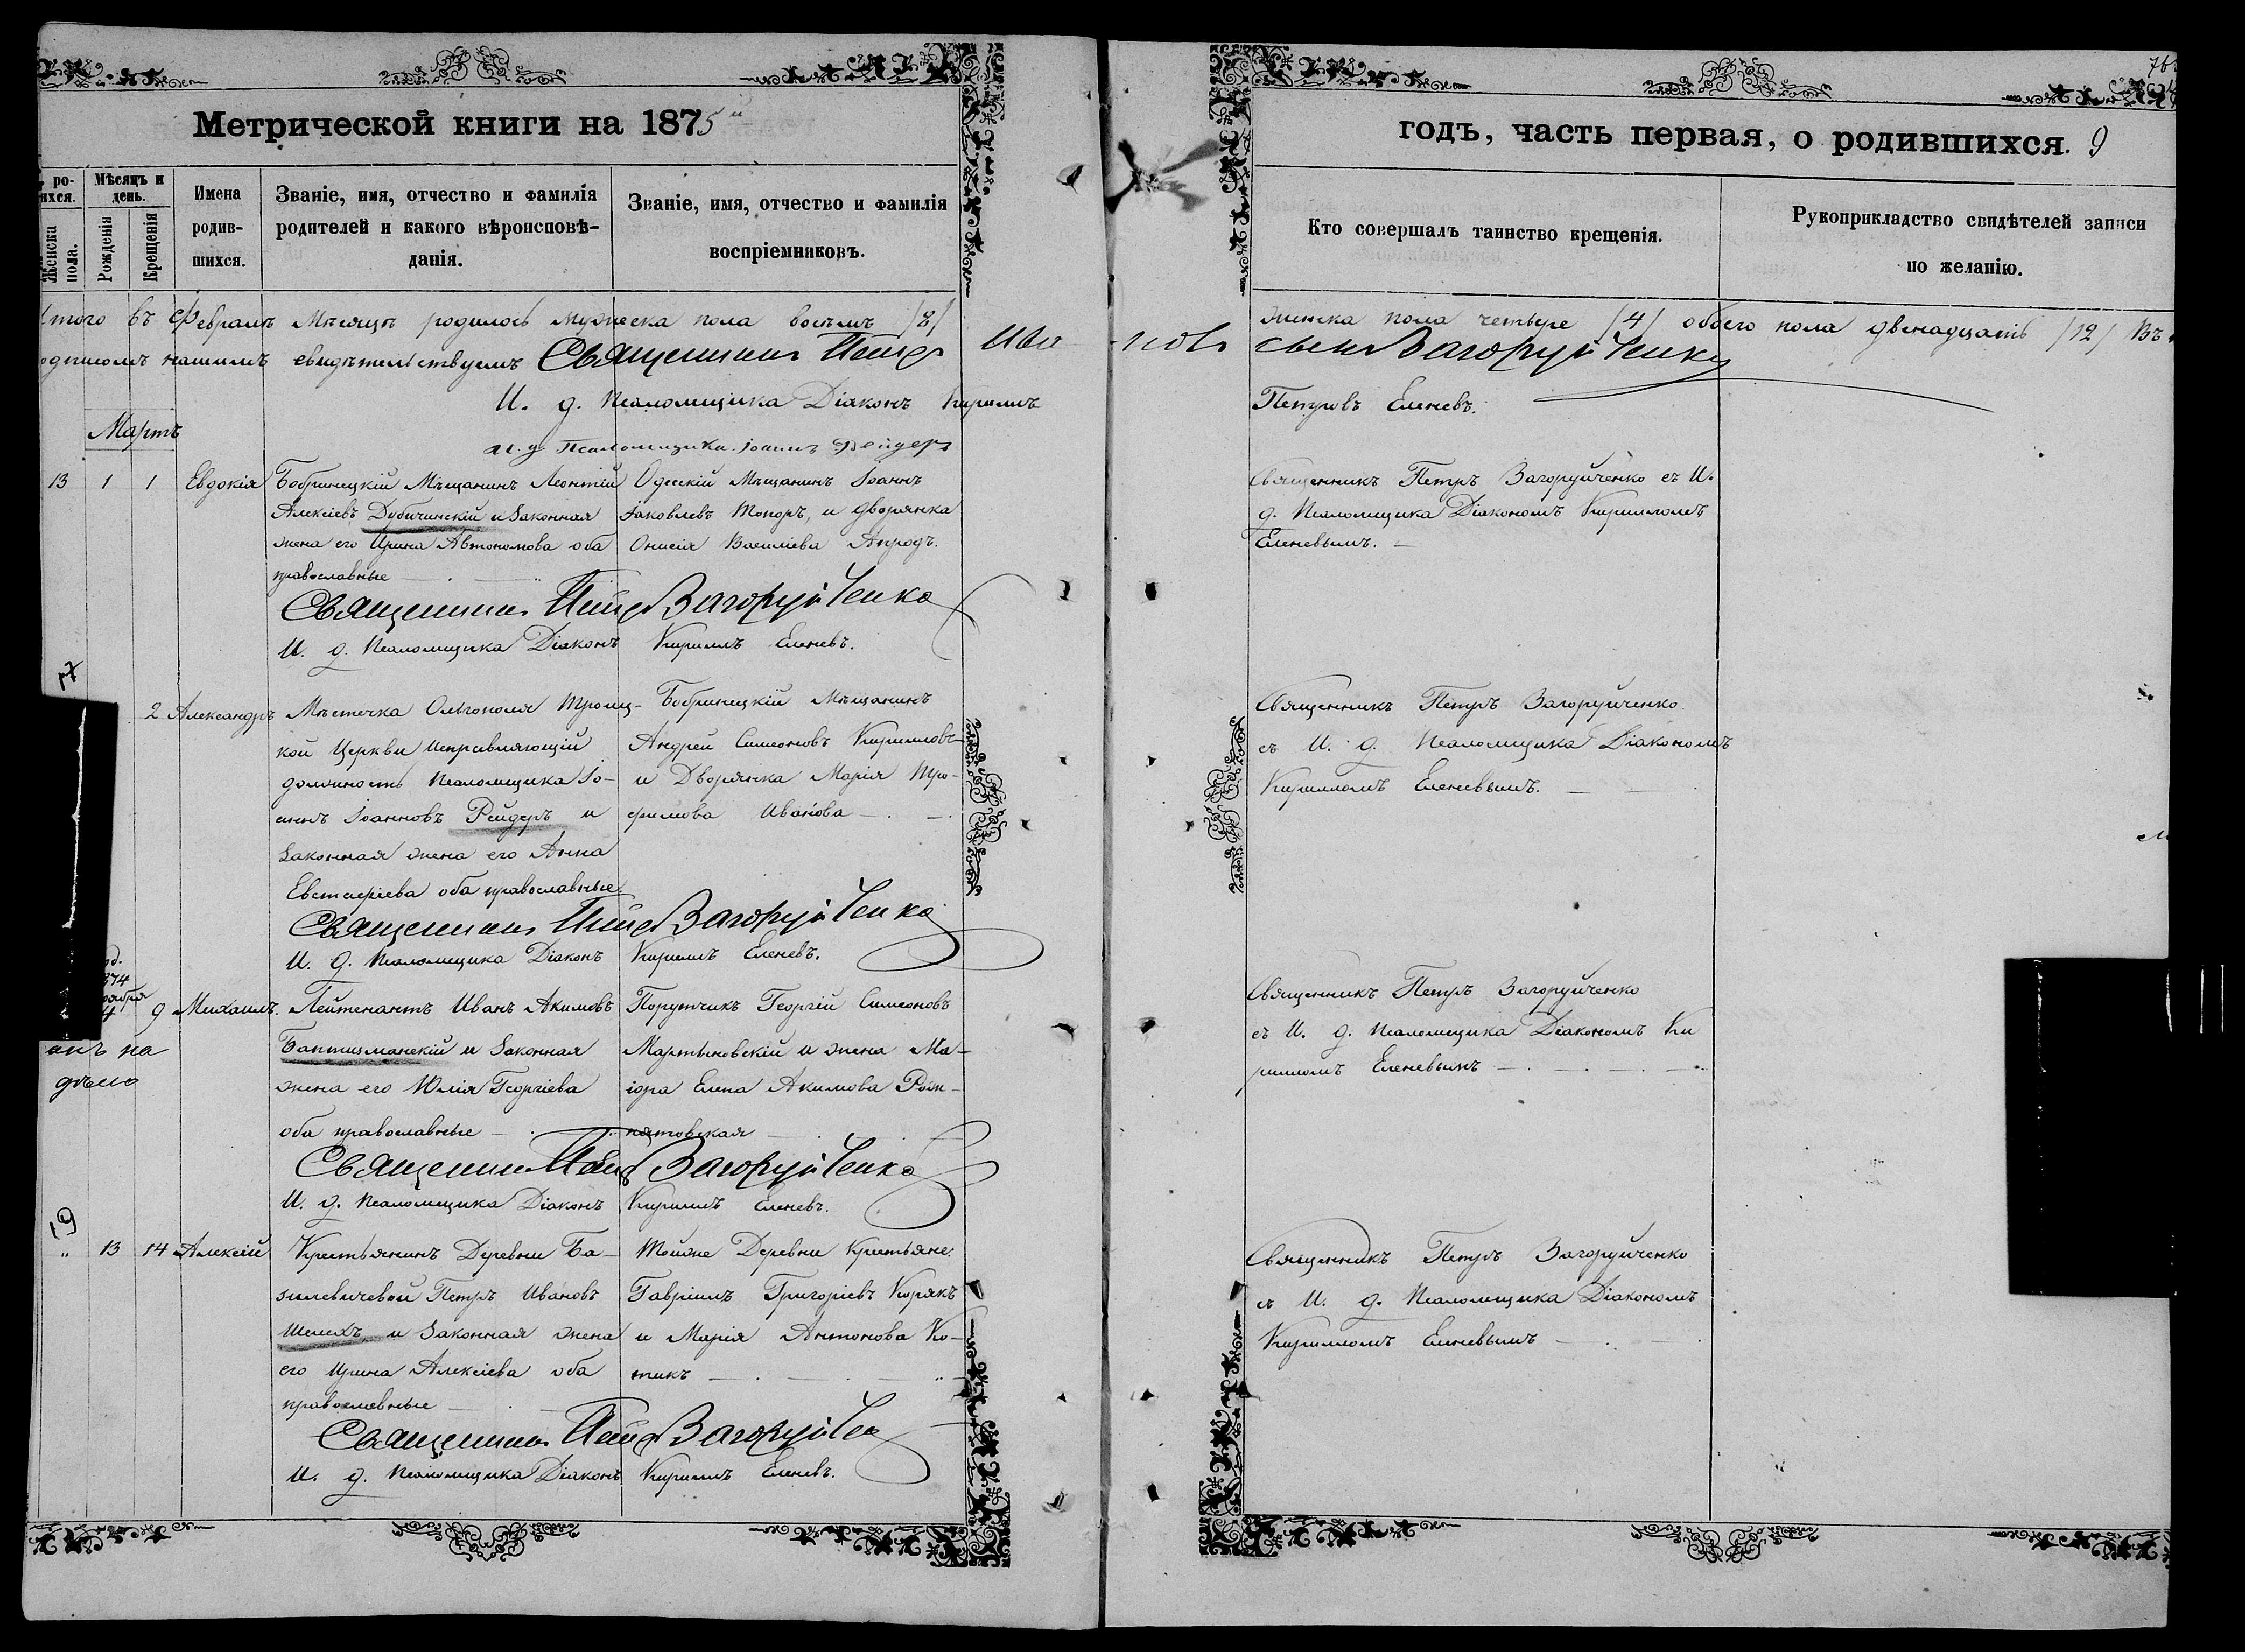 Метрической книги на 1875й
годъ, часть первая, о родившихся. 9
ро-
ихся.
Женска
пола.
Мѣсяцъ и
день.
Рожденія
Крещенія
Имена
родив-
шихся.
Званіе, имя, отчество и фамилія
родителей и какого вѣроисповѣ-
данія.
Званіе, имя, отчество и фамилія
воспріемниковъ.
Кто совершалъ таинство крещенія.
Рукоприкладство свидѣтелей записи
по желанію.
Итого въ Февралѣ Мѣсяцѣ родилось мужеска пола восемь /8/ женска пола четыре /4/ обоего пола двенадцать /12/ Въ
нашимъ свидѣтельствуемъ Священникъ Петръ Ива новъ сынъ Загоруйченко
И. д. Псаломщика Діаконъ Кириллъ Петровъ Еленевъ.
и. д. Псаломщика Іоаннъ Рейдеръ
Мартъ
13 1 1 Евдокія
Бобринецкій Мѣщанинъ Леонтій
Алексіевъ Дубичинскій и Законная
жена его Ирина Автономова оба
православные
Одесскій Мѣщанинъ Іоаннъ
Іаковлевъ Топоръ, и Дворянка
Онисія Василіева
Священникъ Петръ Загоруйченко съ И.
д. Псаломщика Діакономъ Кирилломъ
Еленевымъ.
Священникъ Петръ Загоруйченко
И. д. Псаломщика Діаконъ Кириллъ Еленевъ.
17
2 Александръ
Мѣстечка Ольгополя Троиц-
кой Церкви Исправляющій
должность Псаломщика Іо-
аннъ Іоанновъ Рейдеръ и
Законная жена его Анна
Евстафіева оба православные.
Бобринецкій Мѣщанинъ
Андрей Симеоновъ Кирилловъ
и Дворянка Марія Тро-
фимова Иванова
Священникъ Петръ Загоруйченко
съ И. д. Псаломщика Діакономъ
Кирилломъ Еленевымъ.
Священникъ Петръ Загоруйченко
И. д. Псаломщика Діаконъ Кириллъ Еленевъ.
874
9 Михаилъ.
Лейтенантъ Иванъ Акимовъ
Баптизманскій и Законная
жена его Юлія Георгіева
оба православные
Поручикъ Георгій Симеоновъ
Мартыновскій и жена Ма-
іора Елена Акимова Рож-
нятовская
Священникъ Петръ Загоруйченко
съ И. д. Псаломщика Діакономъ Ки
рилломъ Еленевымъ
Священникъ Петръ Загоруйченко
И. д. Псаломщика Діаконъ Кириллъ Еленевъ.
19
" 13 14 Алексій
Крестьянинъ Деревни Ба-
зилевичевой Петръ Ивановъ
Шелехъ, и Законная жена
его Ирина Алексіева оба
православные
Тойже Деревни Крестьяне:
Гавріилъ Григоріевъ Корякъ
и Марія Антонова Ко-
тикъ
Священникъ Петръ Загоруйченко
съ И. д. Псаломщика Діакономъ
Кирилломъ Еленевымъ
Священникъ Петръ Загоруйченко
И. д. Псаломщика Діаконъ Кириллъ Еленевъ.